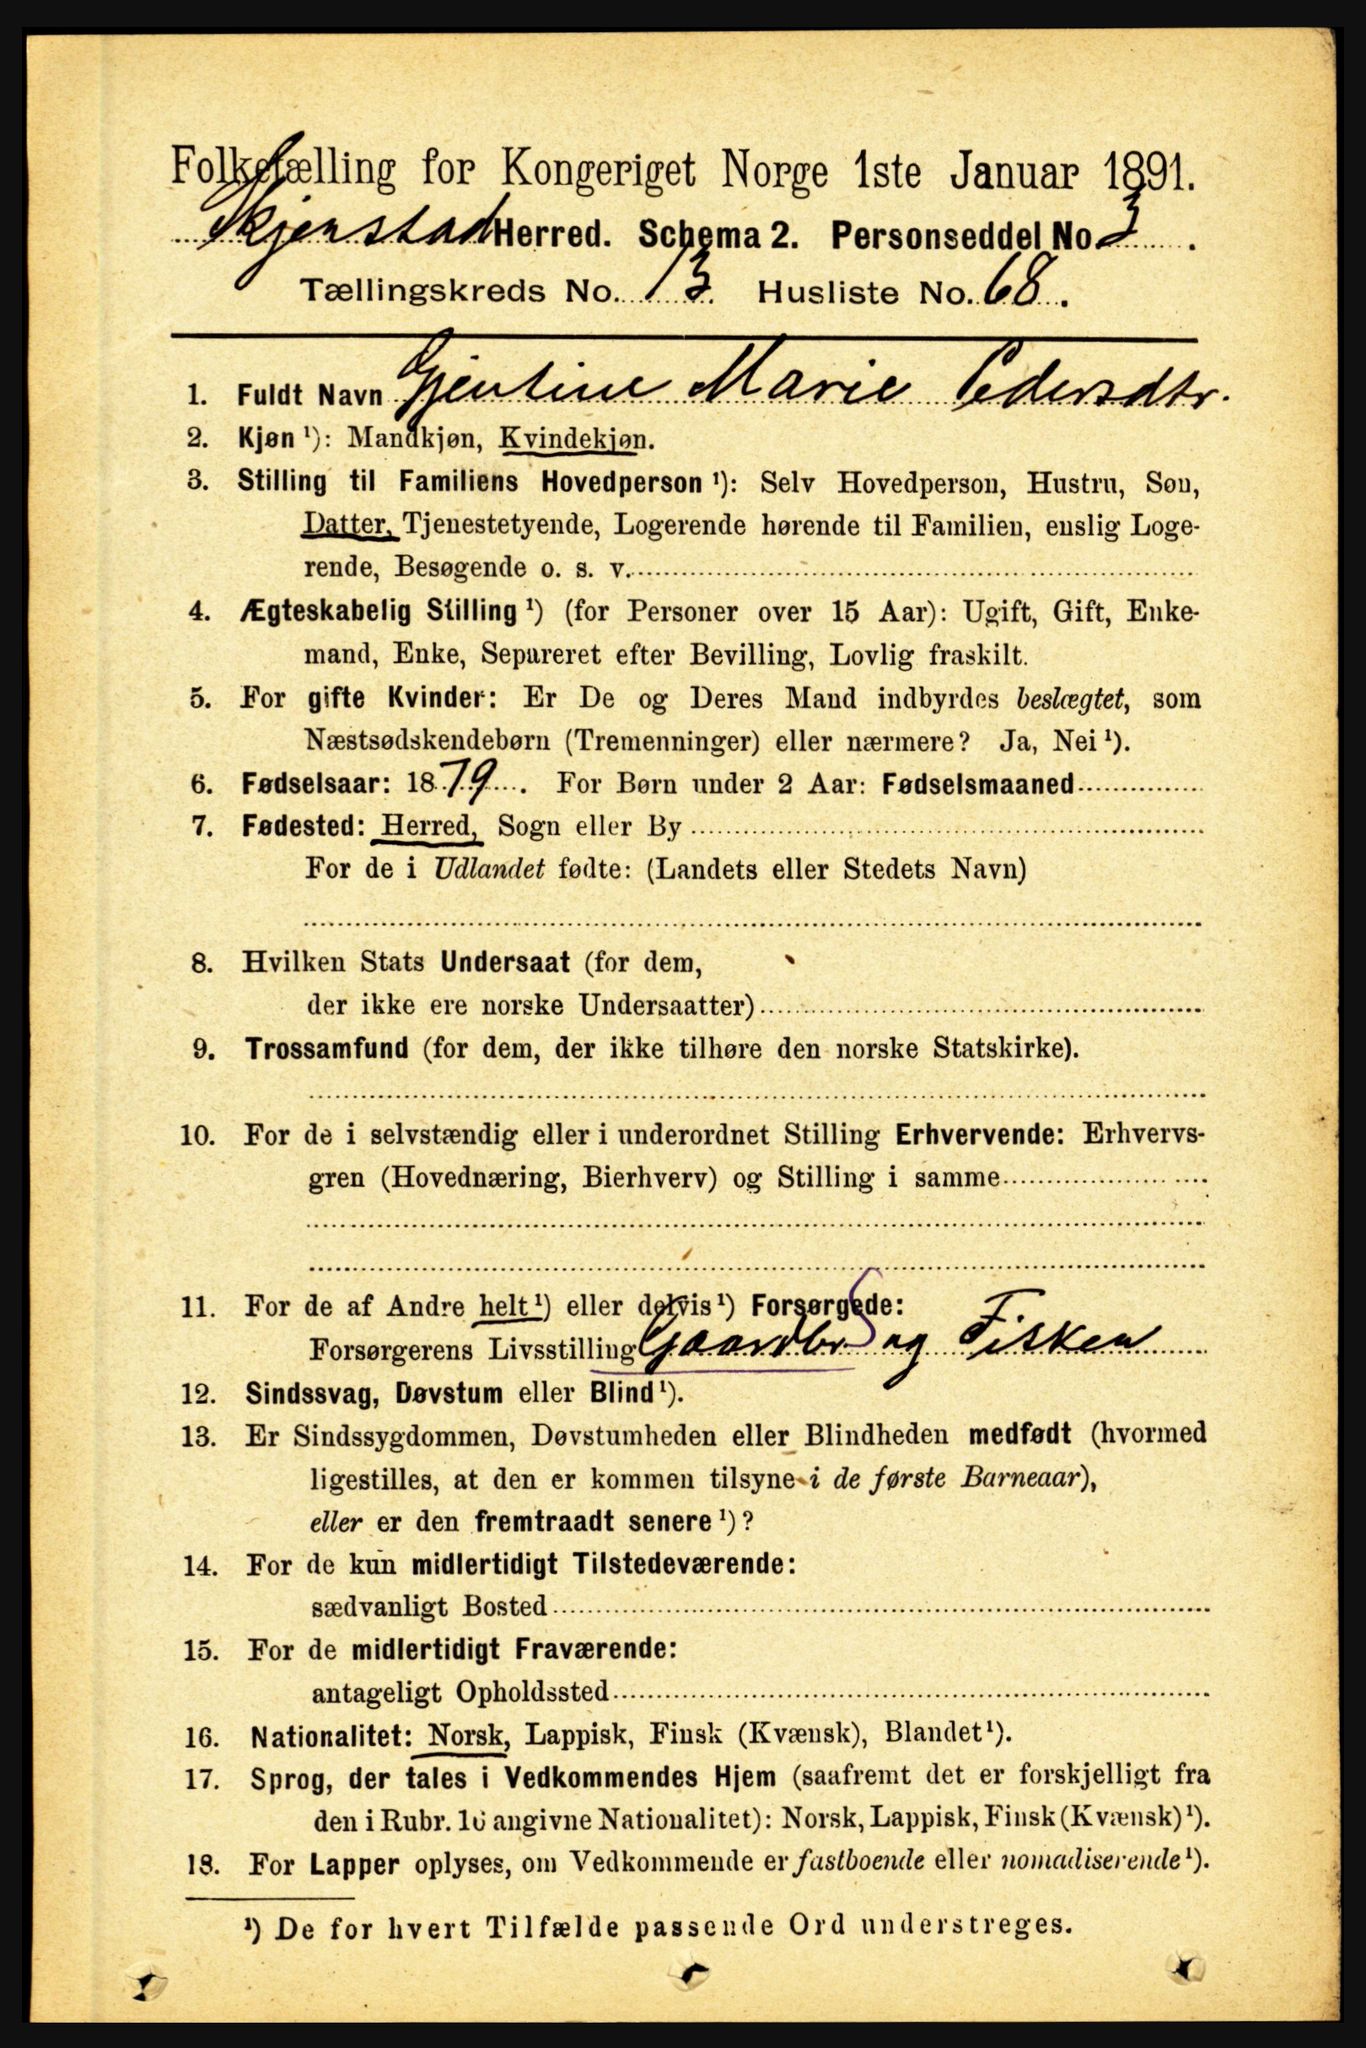 Folketælling for Kongeriget Norge 1ste Januar 1891.
Skjerstad Herred. Schema 2. Personseddel No 3.
Tællingskreds No. 13. Husliste No. 68.
1. Fuldt Navn Gjentine Marie Pedersdtr.
2. Kjøn ¹): Mandkjøn, Kvindekjøn.
3. Stilling til Familiens Hovedperson ¹): Selv Hovedperson, Hustru, Søn,
Datter, Tjenestetyende, Logerende hørende til Familien, enslig Loge-
rende, Besøgende o. s. v.
4. Ægteskabelig Stilling ¹) (for Personer over 15 Aar): Ugift, Gift, Enke-
mand, Enke, Separeret efter Bevilling, Lovlig fraskilt.
5. For gifte Kvinder: Er De og Deres Mand indbyrdes beslægtet, som
Næstsødskendebørn (Tremenninger) eller nærmere? Ja, Nei ¹).
6. Fødselsaar: 1879. For Børn under 2 Aar: Fødselsmaaned
7. Fødested: Herred, Sogn eller By
For de i Udlandet fødte: (Landets eller Stedets Navn)
8. Hvilken Stats Undersaat (for dem,
der ikke ere norske Undersaatter)
9. Trossamfund (for dem, der ikke tilhøre den norske Statskirke).
10. For de i selvstændig eller i underordnet Stilling Erhvervende: Erhvervs-
gren (Hovednæring, Bierhverv) og Stilling i samme
11. For de af Andre helt ¹) eller delvis ¹) Forsørgede:
Forsørgerens Livsstilling Gaardbr S og Fisken
12. Sindssvag, Døvstum eller Blind ¹).
13. Er Sindssygdommen, Døvstumheden eller Blindheden medfødt (hvormed
ligestilles, at den er kommen tilsyne i de første Barneaar),
eller er den fremtraadt senere ¹)?
14. For de kun midlertidigt Tilstedeværende:
sædvanligt Bosted
15. For de midlertidigt Fraværende:
antageligt Opholdssted
16. Nationalitet: Norsk, Lappisk, Finsk (Kvænsk), Blandet ¹).
17. Sprog, der tales i Vedkommendes Hjem (saafremt det er forskjelligt fra
den i Rubr. 16 angivne Nationalitet): Norsk, Lappisk, Finsk (Kvænsk) ¹).
18. For Lapper oplyses, om Vedkommende er fastboende eller nomadiserende ¹).
¹) De for hvert Tilfælde passende Ord understreges.